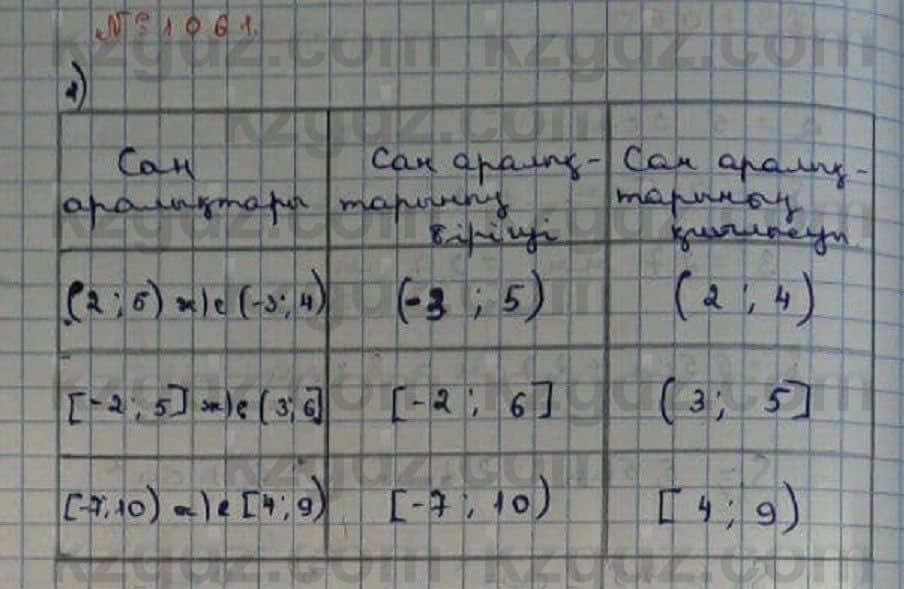 № 1061.
2)
Сан
аралықтары
Сан аралық-
тарының
бірігуі
Сан аралық-
тарының
қиылысуы
(2 ; 5) ж/е (-3; 4)
(-3 ; 5)
(2 ; 4)
[-2 ; 5] ж/е (3; 6]
[-2 ; 6]
(3; 5]
[-7; 10) ж/е [4; 9)
[-7 ; 10)
[4 ; 9)
kzgdz.com